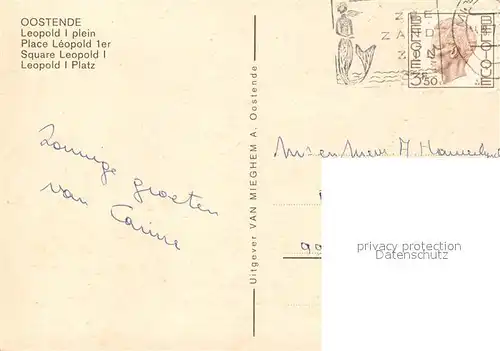 OOSTENDE
Leopold I plein
Place Léopold 1er
Square Leopold I
Leopold I Platz
ZEE
ZAND
ZON
BELGIE
BELGIQUE
3,50
Zonnige groeten
van Carine
Uitgever VAN MIEGHEM A. Oostende
en Mevr.
privacy protection
Datenschutz